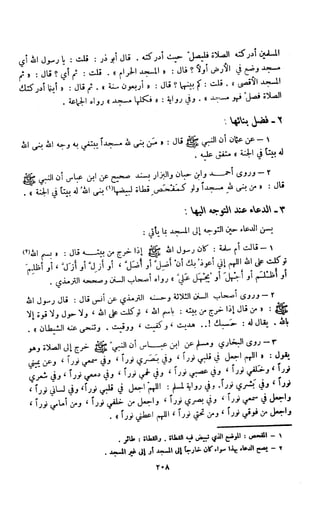 المسلمين أدركته الصلاة فليصل حيث أدركته . قال أبو ذر : قلت : يا رسول الله أي
مسجد وضع في الأرض أولاً ؟ قال : « المسجد الحرام » . قلت : ثم أي ؟ قال : « ثم
المسجد الأقصى » . قلت : كم بينهما ؟ قال : « أربعون سنة » . ثم قال : « أينما أدركتك
الصلاة فصل فهو مسجد » . وفي رواية : « فكلها مسجد » رواه الجماعة .
٢ - فضل بنائها :
١ - عن عثمان أن النبي ﷺ قال : « من بنى لله مسجداً يبتغي به وجه الله بنى الله
له بيتاً في الجنة » متفق عليه .
٢ - وروى أحمد وابن حبان والبزار بسند صحيح عن ابن عباس أن النبي ﷺ
قال : « من بنى لله مسجداً ولو كمفحص قطاة لبيضها (١) بنى الله له بيتاً في الجنة » .
٣ - الدعاء عند التوجه إليها :
يسن الدعاء حين التوجه إلى المسجد بما يأتي :
١ - قالت أم سلمة : كان رسول الله ﷺ إذا خرج من بيته قال : « بسم الله (٢)
توكلت على الله اللهم إني أعوذ بك أن أضل أو أضل ، أو أزل أو أزل ، أو أظلم
أو أظلم أو أجهل أو يجهل علي » رواه أصحاب السنن وصححه الترمذي .
٢ - وروى أصحاب السنن الثلاثة وحسنه الترمذي عن أنس قال : قال رسول الله
ﷺ : « من قال إذا خرج من بيته : باسم الله ، توكلت على الله ، ولا حول ولا قوة إلا
بالله . يقال له : حسبك !.. هديت ، وكفيت ، ووقيت . وتنحى عنه الشيطان » .
٣ - روى البخاري ومسلم عن ابن عباس أن النبي ﷺ خرج إلى الصلاة وهو
يقول : « اللهم اجعل في قلبي نوراً ، وفي بصري نوراً ، وفي سمعي نوراً ، وعن يميني
نوراً ، وخلفي نوراً ، وفي عصبي نوراً ، وفي لحمي نوراً ، وفي دمعي نوراً ، وفي شعري
نوراً ، وفي بشري نوراً . وفي رواية لمسلم : اللهم اجعل في قلبي نوراً ، وفي لساني نوراً ،
واجعل في سمعي نوراً ، وفي بصري نوراً ، واجعل من خلفي نوراً ، ومن أمامي نوراً ،
واجعل من فوقي نوراً ، ومن تحتي نوراً ، اللهم اعطني نوراً » .
١ - المفحص : الموضع الذي تبيض فيه القطاة . والقطاة : طائر .
٢ - يصح الدعاء بهذا سواء كان خارجاً إلى المسجد أو إلى غير المسجد .
٢٠٨